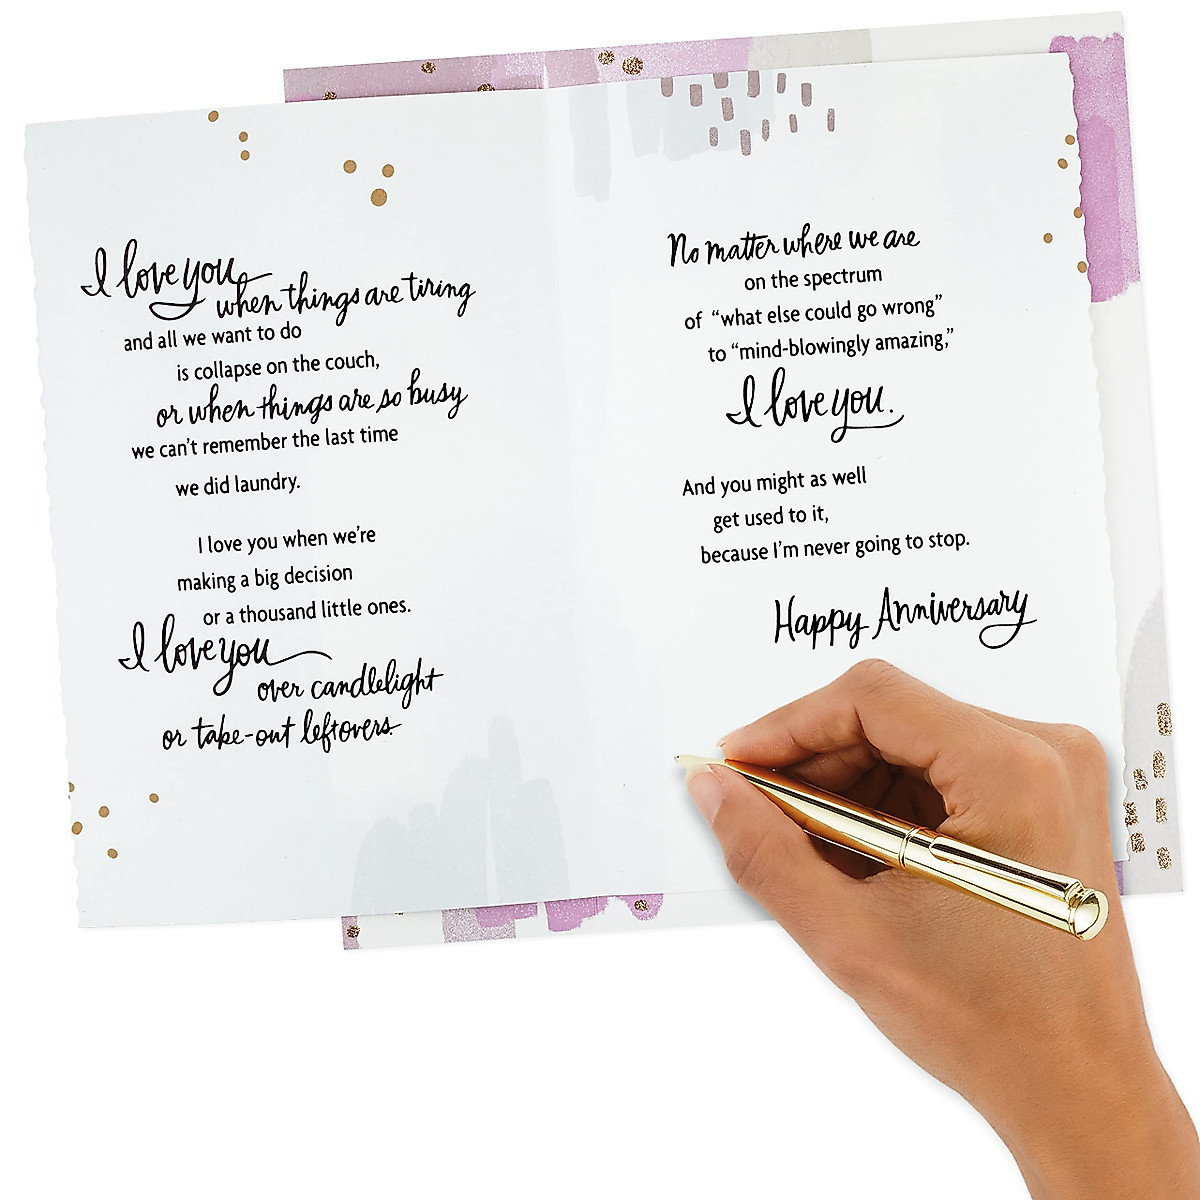 I love you
when things are tiring
and all we want to do
is collapse on the couch,
or when things are so busy
we can't remember the last time
we did laundry.
I love you when we're
making a big decision
or a thousand little ones.
I love you
over candlelight
or take-out leftovers.
No matter where we are
on the spectrum
of "what else could go wrong"
to "mind-blowingly amazing,"
I love you.
And you might as well
get used to it,
because I'm never going to stop.
Happy Anniversary